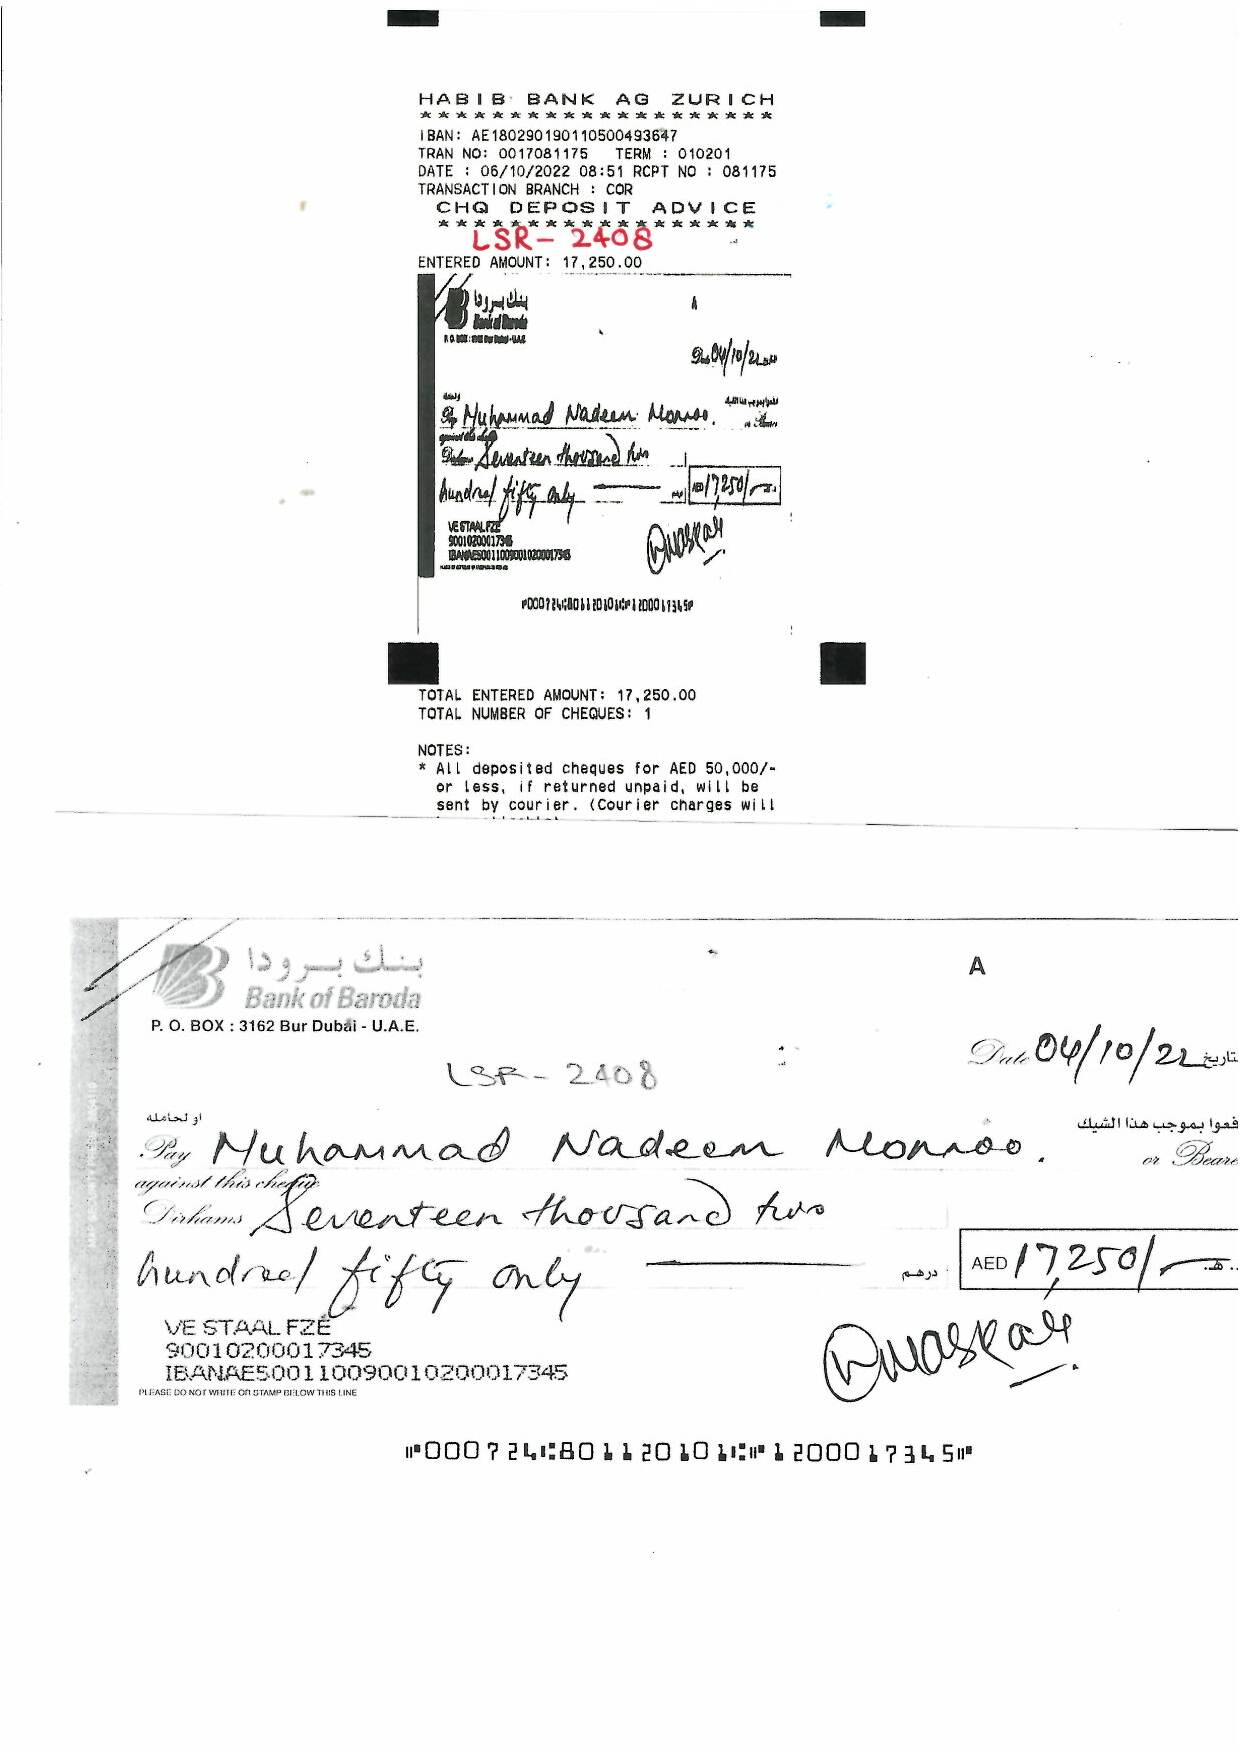 HABIB BANK AG ZURICH
********************
IBAN: AE180290190110500493647
TRAN NO: 0017081175 TERM : 010201
DATE : 06/10/2022 08:51 RCPT NO : 081175
TRANSACTION BRANCH : COR
CHQ DEPOSIT ADVICE
******************
LSR- 2408
ENTERED AMOUNT: 17,250.00
بنك برودا
Bank of Baroda
A
Date 04/10/22
Pay Muhammad Nadeem Monnoo.
against this cheque
Dirhams Seventeen thousand two
hundred fifty only
17,250/-
VE STAAL FZE
90010200017345
IBANAE500110090010200017345
⑈000724⑆801120101⑆⑈120001 7345⑈
TOTAL ENTERED AMOUNT: 17,250.00
TOTAL NUMBER OF CHEQUES: 1
NOTES:
* All deposited cheques for AED 50,000/-
or less, if returned unpaid, will be
sent by courier. (Courier charges will
بنك برودا
Bank of Baroda
A
P. O. BOX : 3162 Bur Dubai - U.A.E.
Date 04/10/22 تاريخ
LSR - 2408
او لحامله فعوا بموجب هذا الشيك
Pay Muhammad Nadeem Monnoo. or Beare
against this cheque
Dirhams Seventeen thousand two
hundred fifty only درهم AED 17,250/-
VE STAAL FZE
90010200017345
IBANAE500110090010200017345
PLEASE DO NOT WRITE OR STAMP BELOW THIS LINE
⑈000724⑆801120101⑆⑈120001 7345⑈